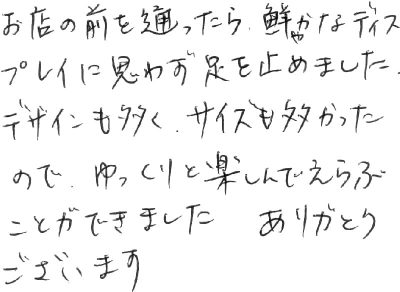 お店の前を通ったら、鮮やかなディス
プレイに思わず足を止めました。
デザインも多く、サイズも多かった
ので、ゆっくりと楽しんでえらぶ
ことができました ありがとう
ございます